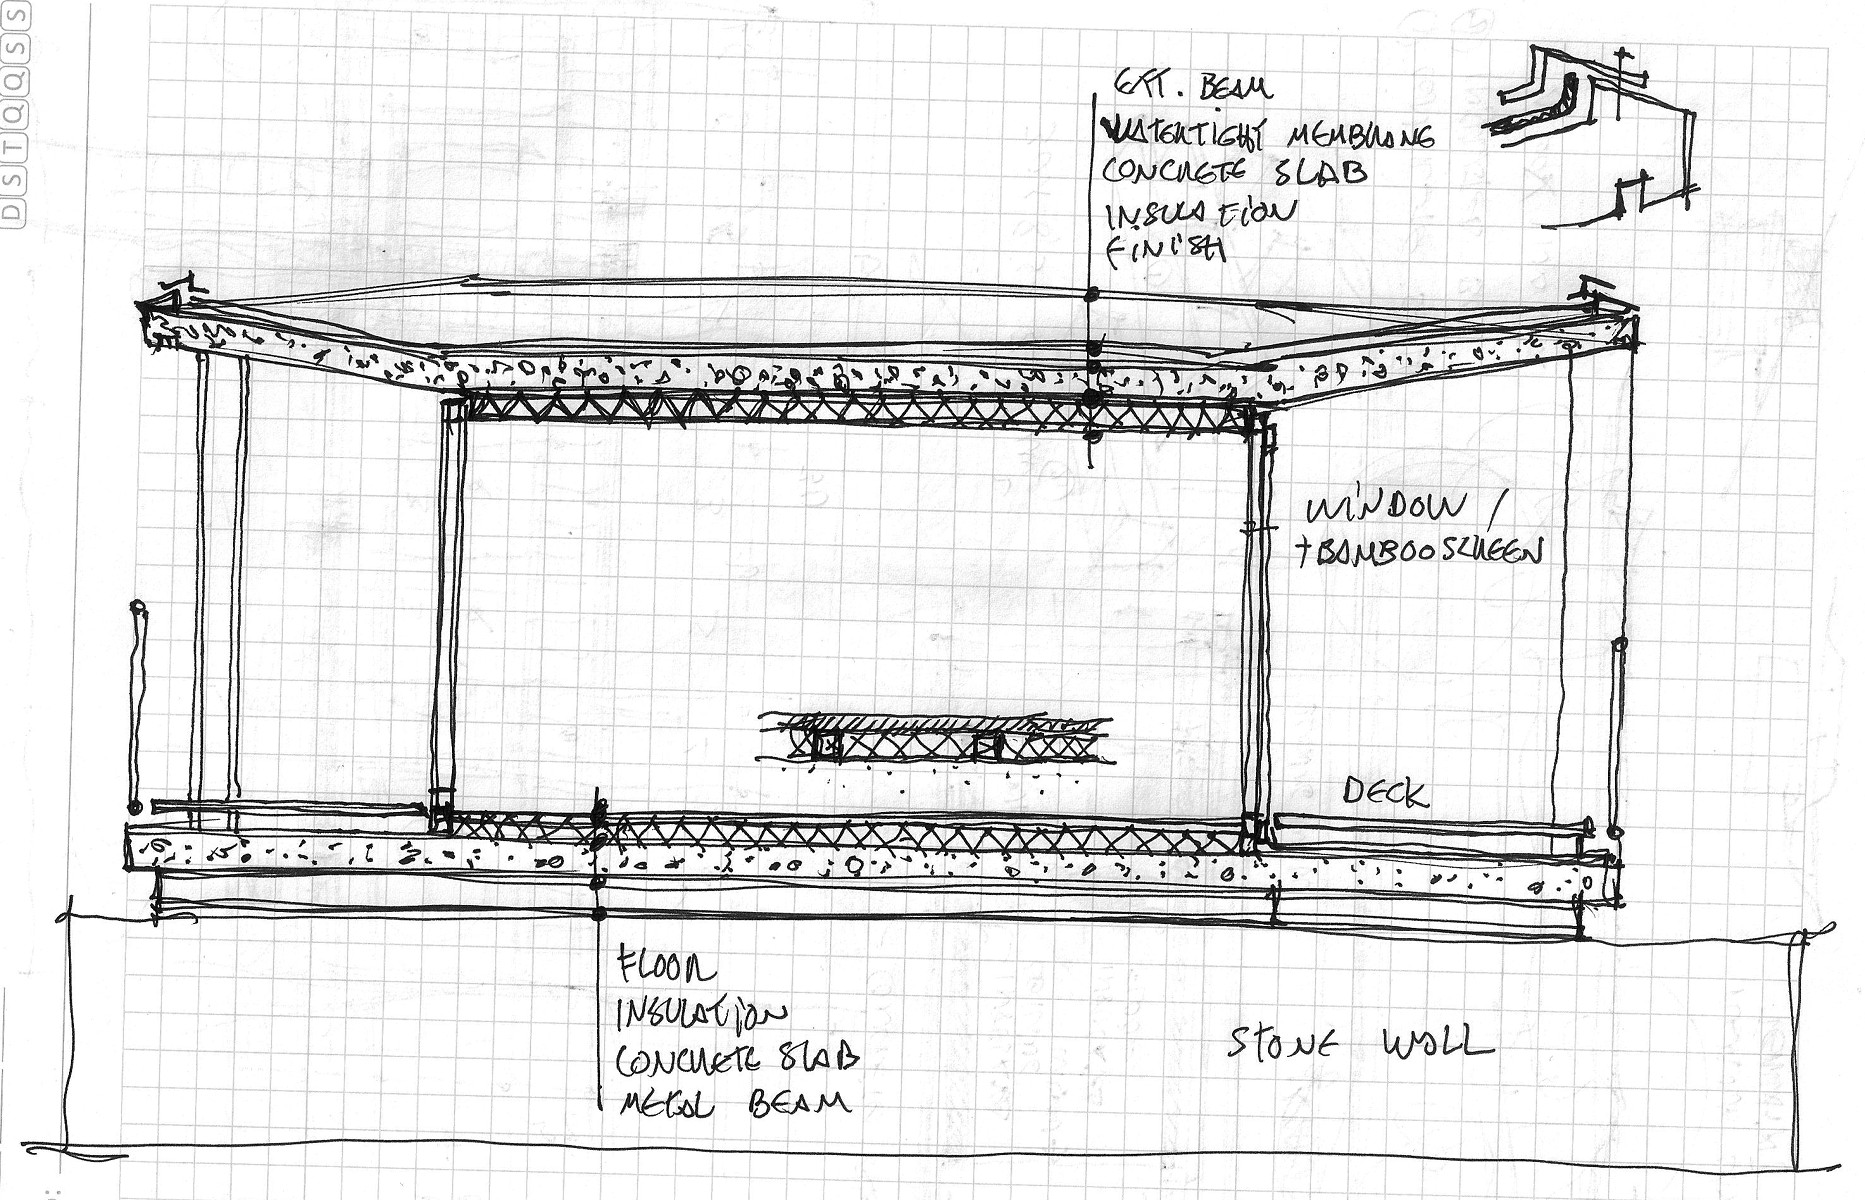 D S T Q Q S S
EXT. BEAM
WATERTIGHT MEMBRANE
CONCRETE SLAB
INSULATION
FINISH
WINDOW /
+ BAMBOO SCREEN
DECK
FLOOR
INSULATION
CONCRETE SLAB
METAL BEAM
STONE WALL